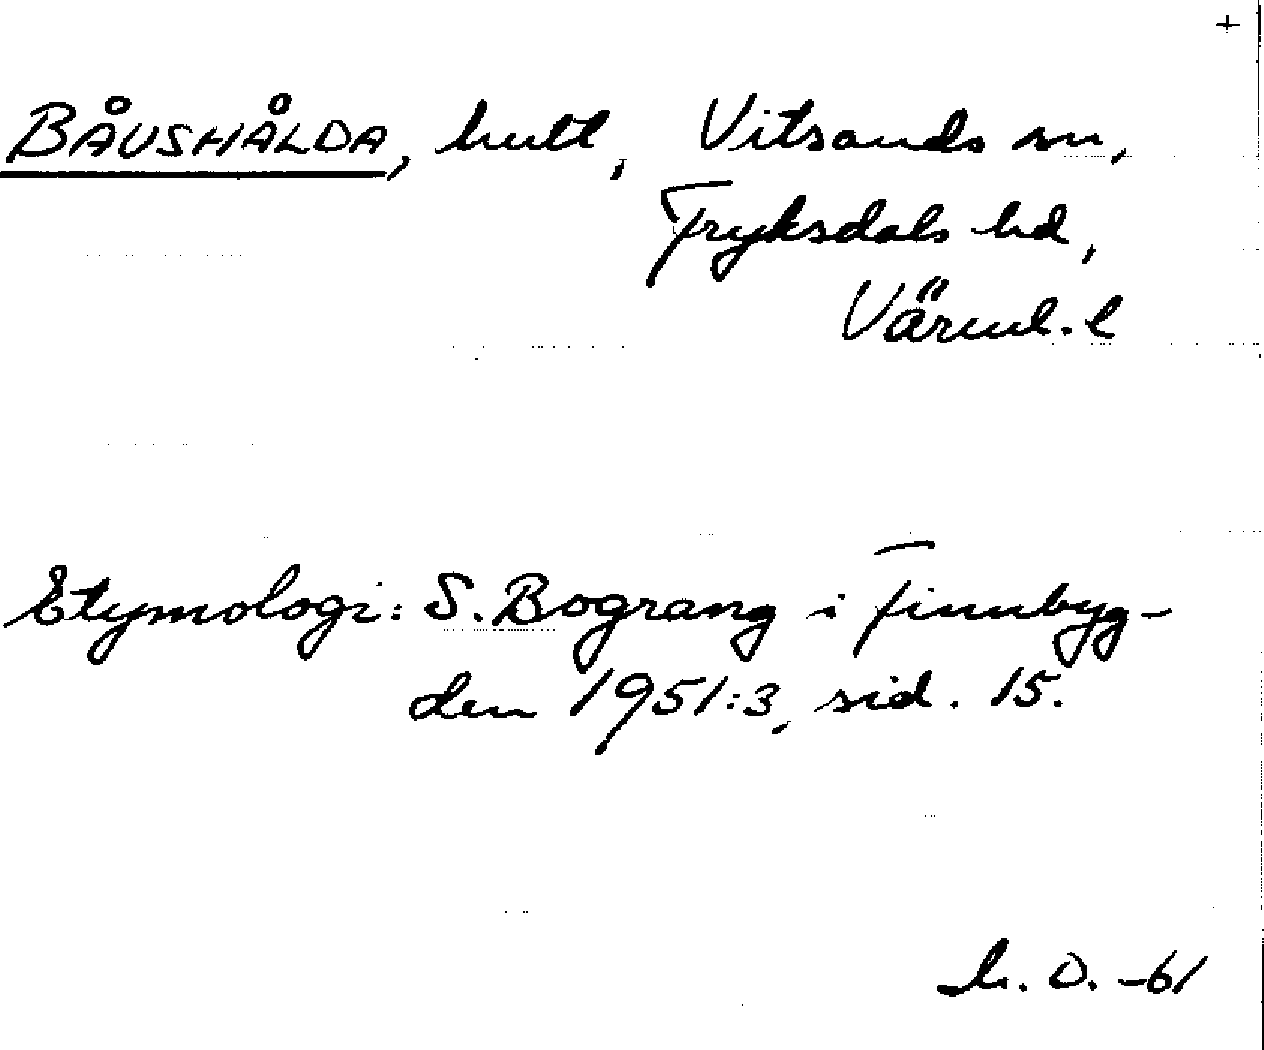 +
BÅUSHÅLDA, hult, Vitsands sn,
Fryksdals hd,
Värml. l
Etymologi: S. Bograng i Finnbyg-
den 1951:3, sid. 15.
h. O. -61